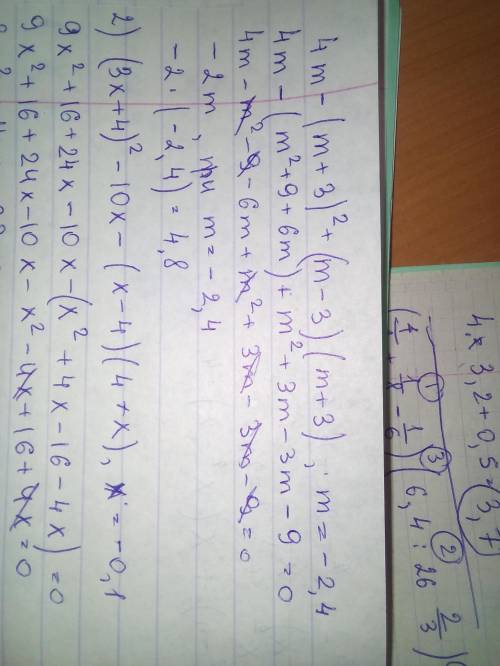 4m - (m+3)² + (m-3)(m+3) ; m = -2,4
4m - (m² + 9 + 6m) + m² + 3m - 3m - 9 = 0
4m - m² - 9 - 6m + m² + 3m - 3m - 9 = 0
-2m, при m = -2,4
-2 · (-2,4) = 4,8
2) (3x+4)² - 10x - (x-4)(4+x), x = -0,1
9x² + 16 + 24x - 10x - (x² + 4x - 16 - 4x) = 0
9x² + 16 + 24x - 10x - x² - 4x + 16 + 4x = 0
4 × 3,2 + 0,5 = (3,7
6,4 : 26 2/3)